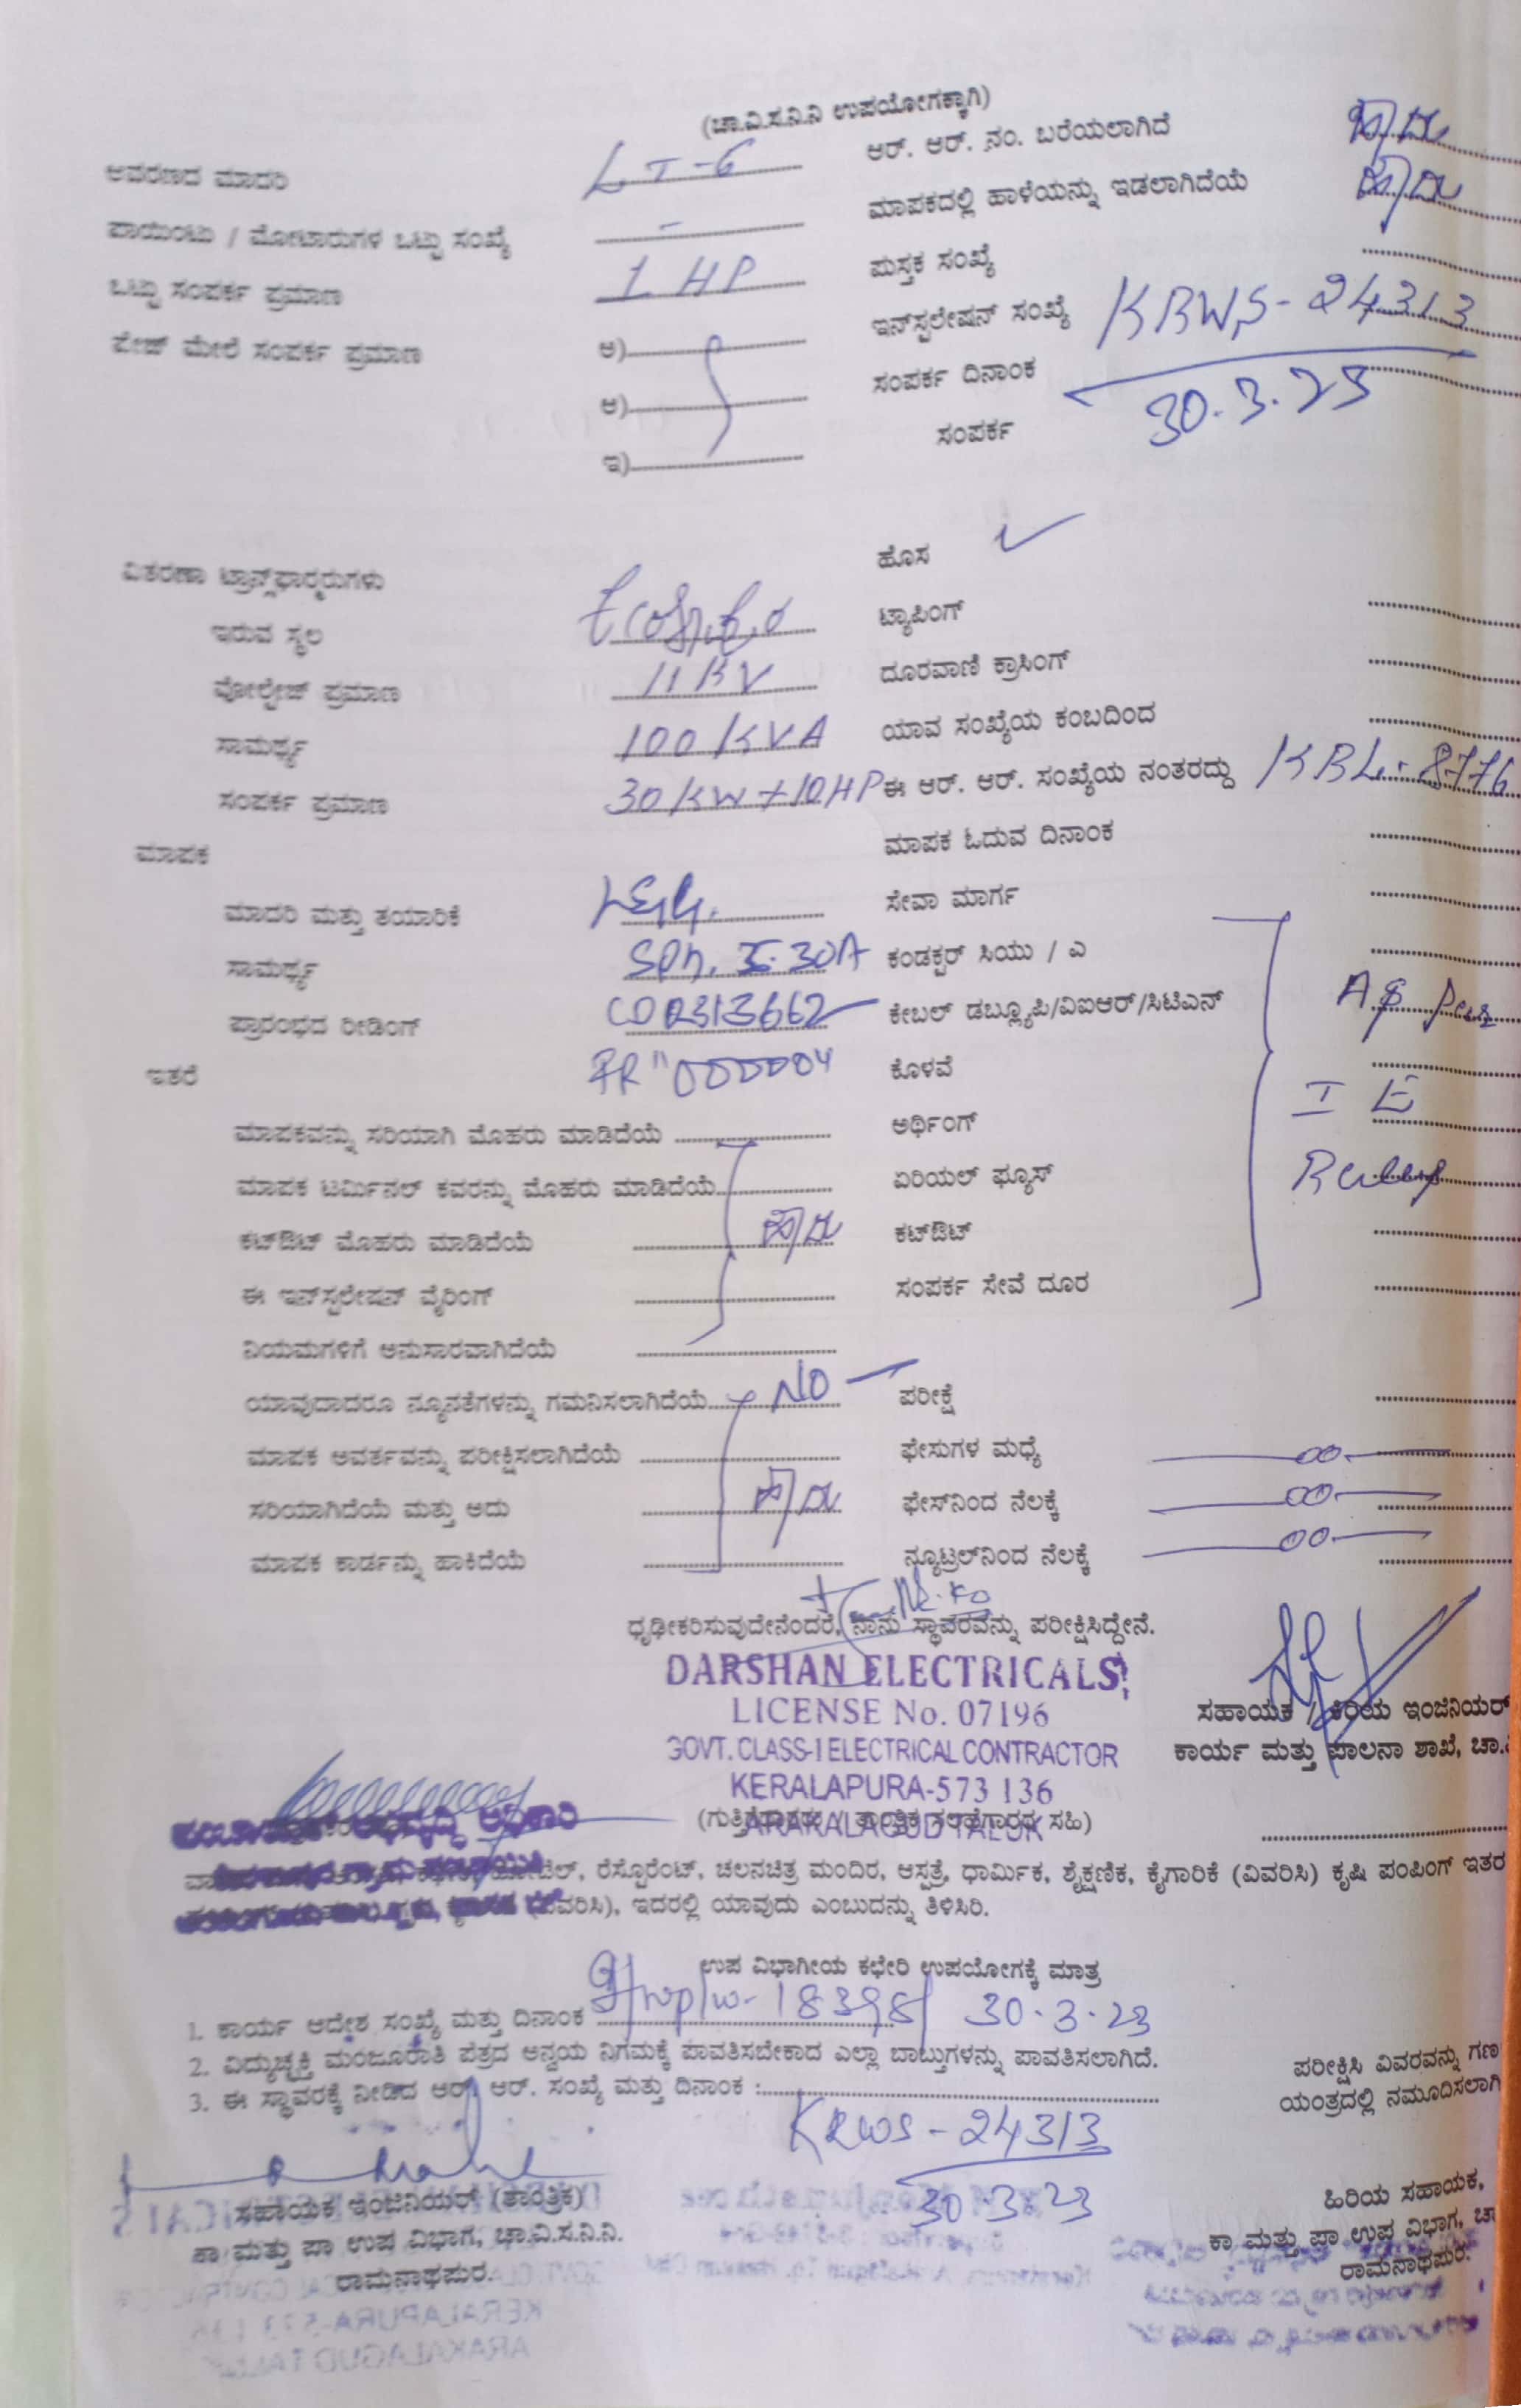 (ಚಾ.ವಿ.ಸ.ನಿ.ನಿ ಉಪಯೋಗಕ್ಕಾಗಿ)
ಆವರಣದ ಮಾದರಿ LT-6
ಪಾಯಿಂಟು / ಮೋಟಾರುಗಳ ಒಟ್ಟು ಸಂಖ್ಯೆ -
ಒಟ್ಟು ಸಂಪರ್ಕ ಪ್ರಮಾಣ 1 HP
ಫೇಜ್ ಮೇಲೆ ಸಂಪರ್ಕ ಪ್ರಮಾಣ ಅ)
ಆ)
ಇ)
ಆರ್. ಆರ್. ನಂ. ಬರೆಯಲಾಗಿದೆ ಹೌದು
ಮಾಪಕದಲ್ಲಿ ಹಾಳೆಯನ್ನು ಇಡಲಾಗಿದೆಯೆ ಹೌದು
ಪುಸ್ತಕ ಸಂಖ್ಯೆ
ಇನ್‌ಸ್ಟಲೇಷನ್ ಸಂಖ್ಯೆ KRWS-24313
ಸಂಪರ್ಕ ದಿನಾಂಕ 30.3.23
ಸಂಪರ್ಕ
ವಿತರಣಾ ಟ್ರಾನ್ಸ್‌ಫಾರ್ಮರುಗಳು
ಇರುವ ಸ್ಥಲ
ವೋಲ್ಟೇಜ್ ಪ್ರಮಾಣ 11 KV
ಸಾಮರ್ಥ್ಯ 100 KVA
ಸಂಪರ್ಕ ಪ್ರಮಾಣ 30 KW + 10 HP
ಹೊಸ ✓
ಟ್ಯಾಪಿಂಗ್
ದೂರವಾಣಿ ಕ್ರಾಸಿಂಗ್
ಯಾವ ಸಂಖ್ಯೆಯ ಕಂಬದಿಂದ
ಈ ಆರ್. ಆರ್. ಸಂಖ್ಯೆಯ ನಂತರದ್ದು KBL-8776
ಮಾಪಕ ಓದುವ ದಿನಾಂಕ
ಮಾಪಕ
ಮಾದರಿ ಮತ್ತು ತಯಾರಿಕೆ
ಸಾಮರ್ಥ್ಯ 5-30A
ಪ್ರಾರಂಭದ ರೀಡಿಂಗ್
ಇತರೆ
ಸೇವಾ ಮಾರ್ಗ
ಕಂಡಕ್ಟರ್ ಸಿಯು / ಎ
ಕೇಬಲ್ ಡಬ್ಲ್ಯೂಪಿ/ವಿಐಆರ್/ಸಿಟಿಎನ್ As per
ಕೊಳವೆ
ಅರ್ಥಿಂಗ್ I E
ಏರಿಯಲ್ ಫ್ಯೂಸ್ Rules
ಕಟ್‌ಔಟ್
ಸಂಪರ್ಕ ಸೇವೆ ದೂರ
ಮಾಪಕವನ್ನು ಸರಿಯಾಗಿ ಮೊಹರು ಮಾಡಿದೆಯೆ
ಮಾಪಕ ಟರ್ಮಿನಲ್ ಕವರನ್ನು ಮೊಹರು ಮಾಡಿದೆಯೆ
ಕಟ್‌ಔಟ್ ಮೊಹರು ಮಾಡಿದೆಯೆ ಹೌದು
ಈ ಇನ್‌ಸ್ಟಲೇಷನ್ ವೈರಿಂಗ್
ನಿಯಮಗಳಿಗೆ ಅನುಸಾರವಾಗಿದೆಯೆ
ಯಾವುದಾದರೂ ನ್ಯೂನತೆಗಳನ್ನು ಗಮನಿಸಲಾಗಿದೆಯೆ NO
ಮಾಪಕ ಆವರ್ತವನ್ನು ಪರೀಕ್ಷಿಸಲಾಗಿದೆಯೆ
ಸರಿಯಾಗಿದೆಯೆ ಮತ್ತು ಅದು ಹೌದು
ಮಾಪಕ ಕಾರ್ಡನ್ನು ಹಾಕಿದೆಯೆ
ಪರೀಕ್ಷೆ
ಫೇಸುಗಳ ಮಧ್ಯೆ
ಫೇಸ್‌ನಿಂದ ನೆಲಕ್ಕೆ
ನ್ಯೂಟ್ರಲ್‌ನಿಂದ ನೆಲಕ್ಕೆ
ಧೃಢೀಕರಿಸುವುದೇನೆಂದರೆ, ನಾನು ಸ್ಥಾವರವನ್ನು ಪರೀಕ್ಷಿಸಿದ್ದೇನೆ.
DARSHAN ELECTRICALS
LICENSE No. 07196
GOVT. CLASS-I ELECTRICAL CONTRACTOR
KERALAPURA-573 136
ARAKALAGUD TALUK
(ಗುತ್ತಿಗೆದಾರರು / ತಾಂತ್ರಿಕ ಸಲಹೆಗಾರರ ಸಹಿ)
ಸಹಾಯಕ / ಕಿರಿಯ ಇಂಜಿನಿಯರ್
ಕಾರ್ಯ ಮತ್ತು ಪಾಲನಾ ಶಾಖೆ, ಚಾ.
ಪಂಚಾಯತಿ ಅಭಿವೃದ್ಧಿ ಅಧಿಕಾರಿ
ರೆಸ್ಟೊರೆಂಟ್, ಚಲನಚಿತ್ರ ಮಂದಿರ, ಆಸ್ಪತ್ರೆ, ಧಾರ್ಮಿಕ, ಶೈಕ್ಷಣಿಕ, ಕೈಗಾರಿಕೆ (ವಿವರಿಸಿ) ಕೃಷಿ ಪಂಪಿಂಗ್ ಇತರ
(ವಿವರಿಸಿ), ಇದರಲ್ಲಿ ಯಾವುದು ಎಂಬುದನ್ನು ತಿಳಿಸಿರಿ.
ಉಪ ವಿಭಾಗೀಯ ಕಛೇರಿ ಉಪಯೋಗಕ್ಕೆ ಮಾತ್ರ
1. ಕಾರ್ಯ ಆದೇಶ ಸಂಖ್ಯೆ ಮತ್ತು ದಿನಾಂಕ 18398/ 30.3.23
2. ವಿದ್ಯುಚ್ಛಕ್ತಿ ಮಂಜೂರಾತಿ ಪತ್ರದ ಅನ್ವಯ ನಿಗಮಕ್ಕೆ ಪಾವತಿಸಬೇಕಾದ ಎಲ್ಲಾ ಬಾಬ್ತುಗಳನ್ನು ಪಾವತಿಸಲಾಗಿದೆ.
3. ಈ ಸ್ಥಾವರಕ್ಕೆ ನೀಡಿದ ಆರ್. ಆರ್. ಸಂಖ್ಯೆ ಮತ್ತು ದಿನಾಂಕ :
KRWS-24313
30.3.23
ಪರೀಕ್ಷಿಸಿ ವಿವರವನ್ನು ಗಣ
ಯಂತ್ರದಲ್ಲಿ ನಮೂದಿಸಲಾಗಿ
ಸಹಾಯಕ ಇಂಜಿನಿಯರ್ (ತಾಂತ್ರಿಕ)
ಕಾ ಮತ್ತು ಪಾ ಉಪ ವಿಭಾಗ, ಚಾ.ವಿ.ಸ.ನಿ.ನಿ.
ರಾಮನಾಥಪುರ.
ಹಿರಿಯ ಸಹಾಯಕ,
ಕಾ ಮತ್ತು ಪಾ ಉಪ ವಿಭಾಗ, ಚಾ
ರಾಮನಾಥಪುರ.